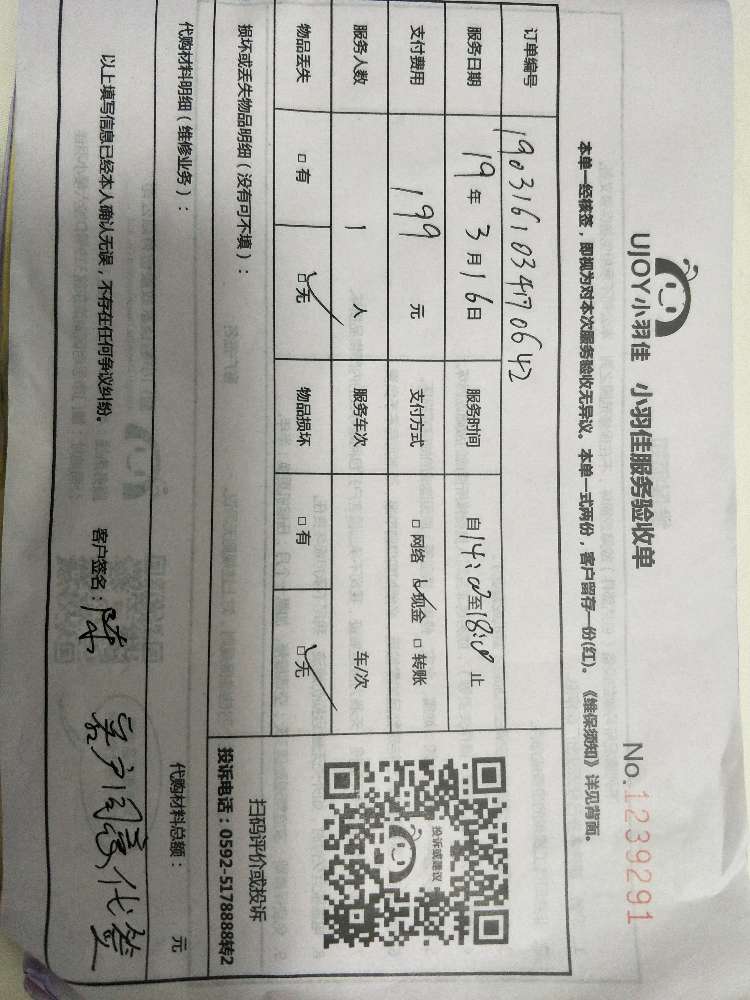 UJOY小羽佳 小羽佳服务验收单
No.1239291
本单一经核签，即视为对本次服务验收无异议。本单一式两份，客户留存一份(红)。《维保须知》详见背面。
订单编号 1903161034170642
服务日期 19年3月16日 服务时间 自14:00至18:00止
支付费用 199元 支付方式 □网络 ☑现金 □转账
服务人数 1人 服务车次 车/次
物品丢失 □有 ☑无 物品损坏 □有 ☑无
损坏或丢失物品明细（没有可不填）：
投诉或建议
扫码评价或投诉
投诉电话：0592-5178888转2
代购材料明细（维修业务）： 代购材料总额： 元
以上填写信息已经本人确认无误，不存在任何争议纠纷。 客户签名：陈 客户同意代签